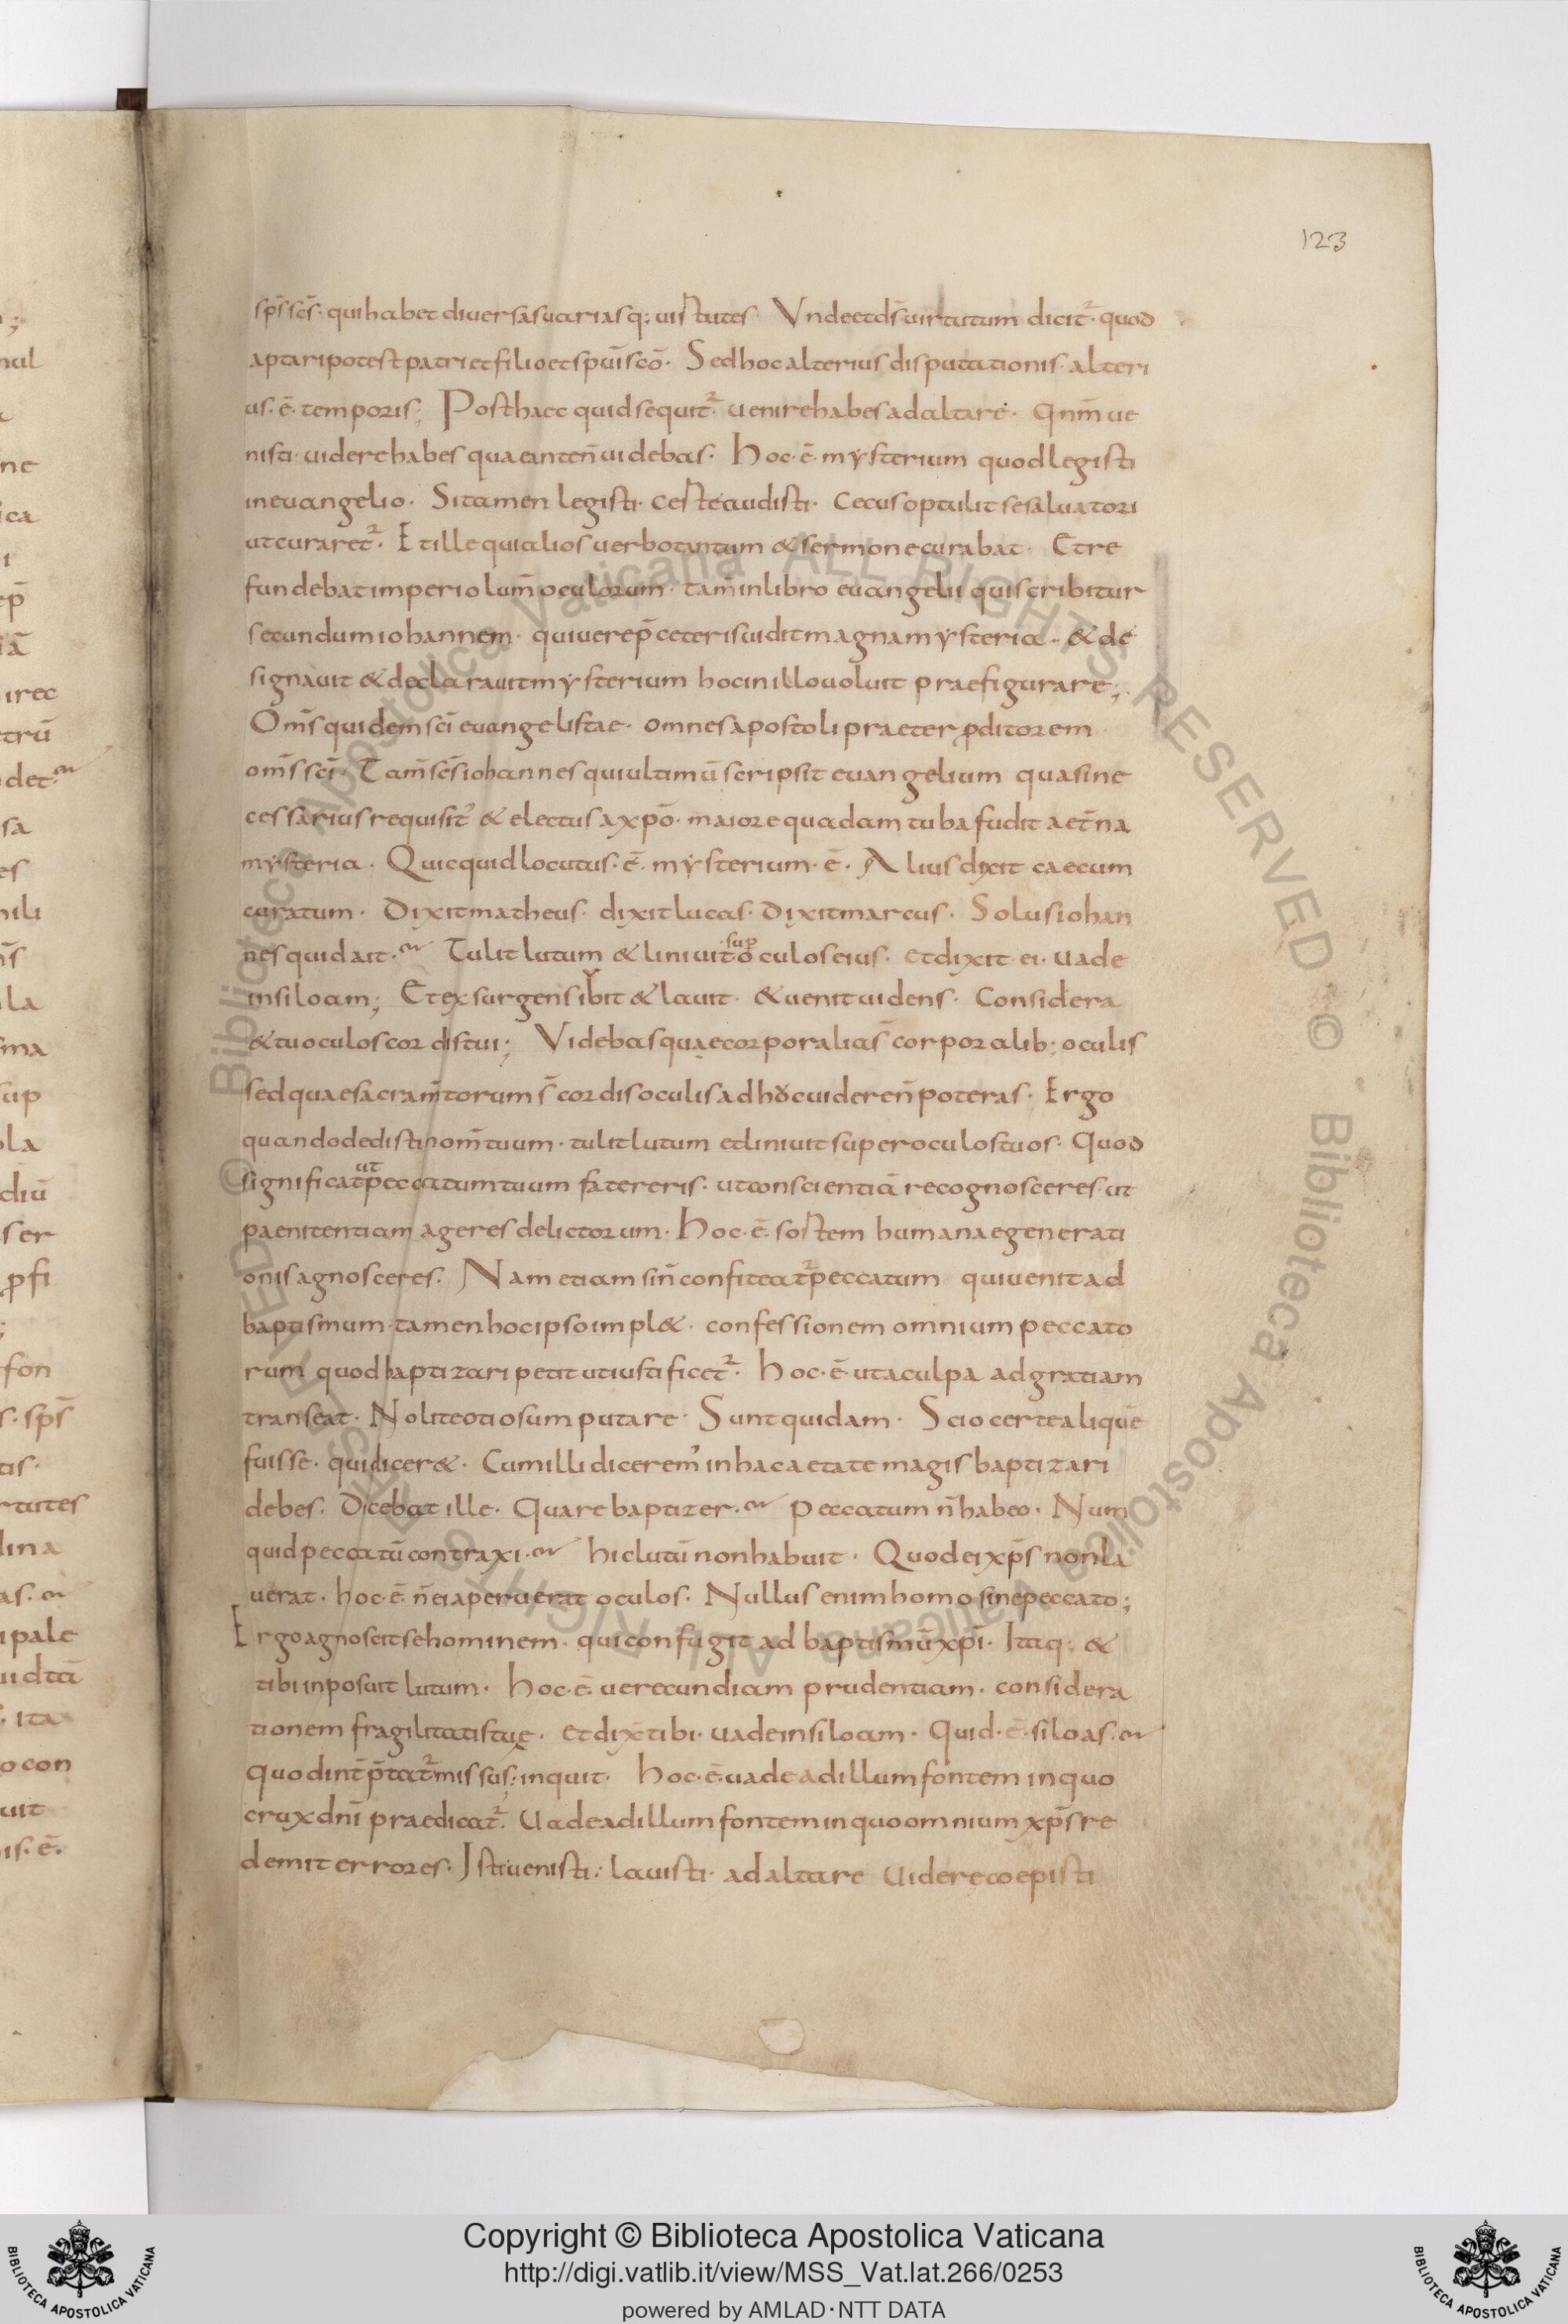 123
sp̄s sc̄s· qui habet diuersas uariasq; uirtutes· Vnde et ds̄ uirtutum dicit᷑· quod
aptari potest patri et filio et spūi scō· Sed hoc alterius disputationis· alteri
us· ē· temporis; Post haec quid sequit᷑· uenire habes ad altare· Qnm̄ ue
nisti· uidere habes quae ante n̄ uidebas· Hoc· ē· mysterium quod legisti
in euangelio· Si tamen legisti· certe audisti· Cecus optulit se saluatori
ut curaret᷑· Et ille qui alios uerbo tantum & sermone curabat· Et re
fundebat imperio lum̄ oculorum· tam̄ in libro euangelii qui scribitur
secundum iohannem· qui uere p̄ ceteris uidit magna mysteria· & de
signauit & declarauit mysterium hoc in illo uoluit praefigurare;
Om̄s quidem sc̄i euangelistae· omnes apostoli praeter ꝓditorem·
om̄s sc̄i· Tam̄ sc̄s iohannes qui ultimū scripsit euangelium quasi ne
cessarius requisit᷑ & electus a xpō· maiore quadam tuba fudit aet̄na
mysteria· Quicquid locutus· ē· mysterium· ē· Alius dixit caecum
curatum· Dixit matheus· dixit lucas· dixit marcus· Solus iohan
nes quid ait· Tulit lutum & liniuit sup̄ oculos eius· et dixit ei· uade
in siloam; Et exsurgens ibit & lauit· & uenit uidens· Considera
& tu oculos cordis tui; Videbas quae corporalia s̄ corporalib; oculis
sed quae sacram̄torum s̄ cordis oculis adhoc uidere n̄ poteras· Ergo
quando dedisti nom̄ tuum· tulit lutum et liniuit super oculos tuos· Quod
significat ut peccatum tuum fatereris· ut conscientiā recognosceres· ut
paenitentiam ageres delictorum· Hoc· ē· sortem humanae generati
onis agnosceres· Nam etiam si n̄ confiteat᷑ peccatum qui uenit ad
baptismum· tamen hoc ipso impl&· confessionem omnium peccato
rum quod baptizari petit ut iustificet᷑· Hoc· ē· ut a culpa ad gratiam
transeat· Nolite otiosum putare· Sunt quidam· Scio certe aliquē
fuisse· qui dicer&· Cum illi dicerem᷒ in hac aetate magis baptizari
debes· Dicebat ille· Quare baptizer· Peccatum n̄ habeo· Num
quid peccatū contraxi· hic lutū non habuit· Quod ei xp̄s non la
uerat· hoc· ē· n̄ ei aperuerat oculos· Nullus enim homo sine peccato;
Ergo agnoscit se hominem· qui confugit ad baptismū xpī· Itaq; &
tibi inposuit lutum· hoc· ē· uerecundiam prudentiam· considera
tionem fragilitatis tuę· et dix̄ tibi· uade in siloam· Quid· ē· siloas·
quod int̄p̄tat᷑ missus; inquit· hoc· ē· uade ad illum fontem in quo
crux dn̄i praedicat᷑· Uade ad illum fontem in quo omnium xp̄s re
demit errores· Isti uenisti· lauisti· ad altare uidere coepisti
Copyright © Biblioteca Apostolica Vaticana
http://digi.vatlib.it/view/MSS_Vat.lat.266/0253
powered by AMLAD·NTT DATA